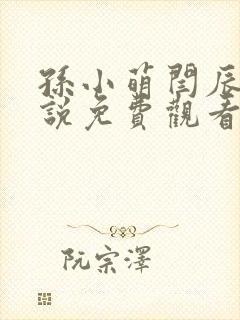 孫小萌閆辰
說免費觀看
阮宗澤